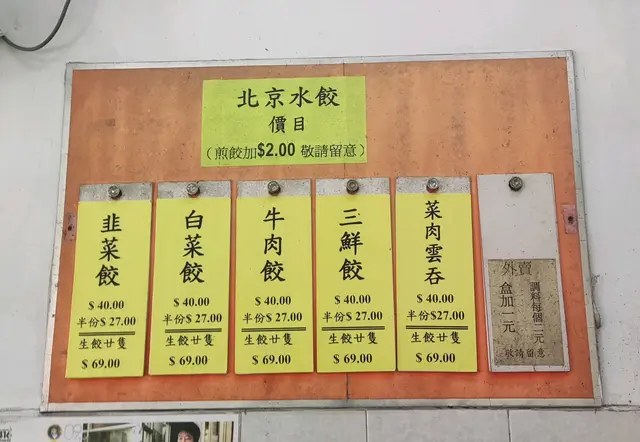 北京水餃
價目
（煎餃加$2.00 敬請留意）
韭菜餃
$ 40.00
半份$ 27.00
生餃廿隻
$ 69.00
白菜餃
$ 40.00
半份$ 27.00
生餃廿隻
$ 69.00
牛肉餃
$ 40.00
半份$ 27.00
生餃廿隻
$ 69.00
三鮮餃
$ 40.00
半份$ 27.00
生餃廿隻
$ 69.00
菜肉雲吞
$ 40.00
半份$27.00
生餃廿隻
$ 69.00
外賣
調料每個二元
盒加一元
敬請留意